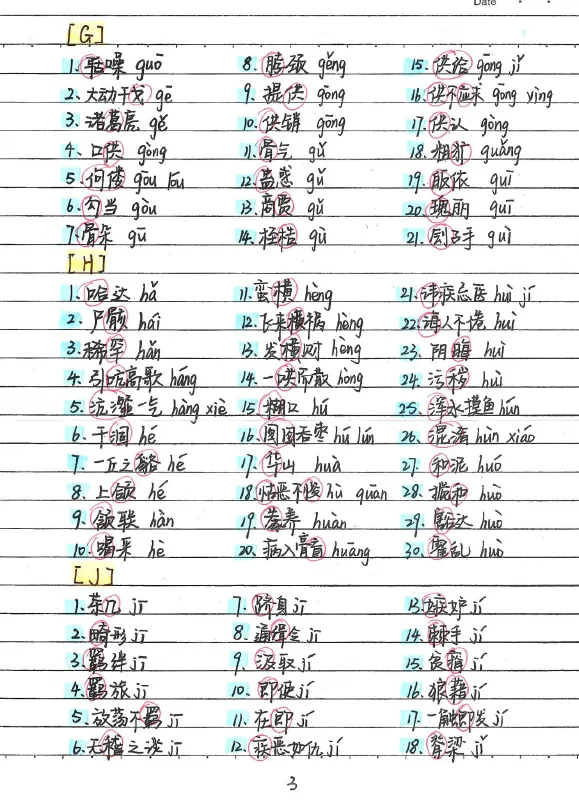 Date
[G]
1. 聒噪 guō 8. 脖颈 gěng 15. 供给 gōng jǐ
2. 大动干戈 gē 9. 提供 gōng 16. 供不应求 gōng yìng
3. 诸葛亮 gě 10. 供销 gōng 17. 供认 gòng
4. 口供 gòng 11. 骨气 gǔ 18. 粗犷 guǎng
5. 佝偻 gōu lóu 12. 蛊惑 gǔ 19. 皈依 guī
6. 勾当 gòu 13. 商贾 gǔ 20. 瑰丽 guī
7. 骨朵 gū 14. 桎梏 gù 21. 刽子手 guì
[H]
1. 哈达 hǎ 11. 蛮横 hèng 21. 讳疾忌医 huì jí
2. 尸骸 hái 12. 飞来横祸 hèng 22. 诲人不倦 huì
3. 稀罕 hǎn 13. 发横财 hèng 23. 阴晦 huì
4. 引吭高歌 háng 14. 一哄而散 hòng 24. 污秽 huì
5. 沆瀣一气 hàng xiè 15. 糊口 hú 25. 浑水摸鱼 hún
6. 干涸 hé 16. 囫囵吞枣 hú lún 26. 混淆 hùn xiáo
7. 一丘之貉 hé 17. 华山 huà 27. 和泥 huó
8. 上颌 hé 18. 怙恶不悛 hù quān 28. 搅和 huò
9. 颔联 hàn 19. 豢养 huàn 29. 豁达 huò
10. 喝采 hè 20. 病入膏肓 huāng 30. 霍乱 huò
[J]
1. 茶几 jī 7. 跻身 jī 13. 嫉妒 jí
2. 畸形 jī 8. 通缉令 jī 14. 棘手 jí
3. 羁绊 jī 9. 汲取 jí 15. 贫瘠 jí
4. 羁旅 jī 10. 即使 jí 16. 狼藉 jí
5. 放荡不羁 jī 11. 在即 jí 17. 一触即发 jí
6. 无稽之谈 jī 12. 疾恶如仇 jí 18. 脊梁 jǐ
3